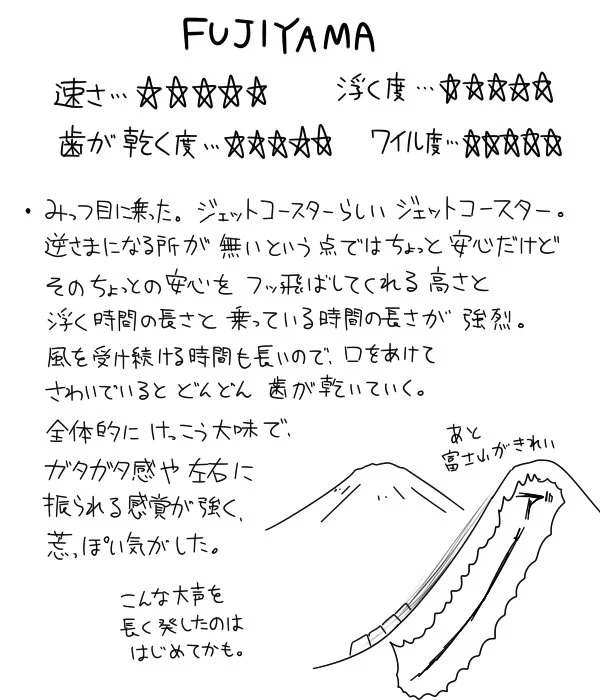 FUJIYAMA
速さ…☆☆☆☆☆ 浮く度…☆☆☆☆☆
歯が乾く度…☆☆☆☆☆ ワイル度…☆☆☆☆☆
・みっつ目に乗った。ジェットコースターらしいジェットコースター。
逆さまになる所が無いという点ではちょっと安心だけど
そのちょっとの安心をフッ飛ばしてくれる高さと
浮く時間の長さと乗っている時間の長さが強烈。
風を受け続ける時間も長いので、口をあけて
さわいでいるとどんどん歯が乾いていく。
全体的にけっこう大味で、
ガタガタ感や左右に
振られる感覚が強く、
荒っぽい気がした。
あと
富士山がきれい
ア
こんな大声を
長く発したのは
はじめてかも。